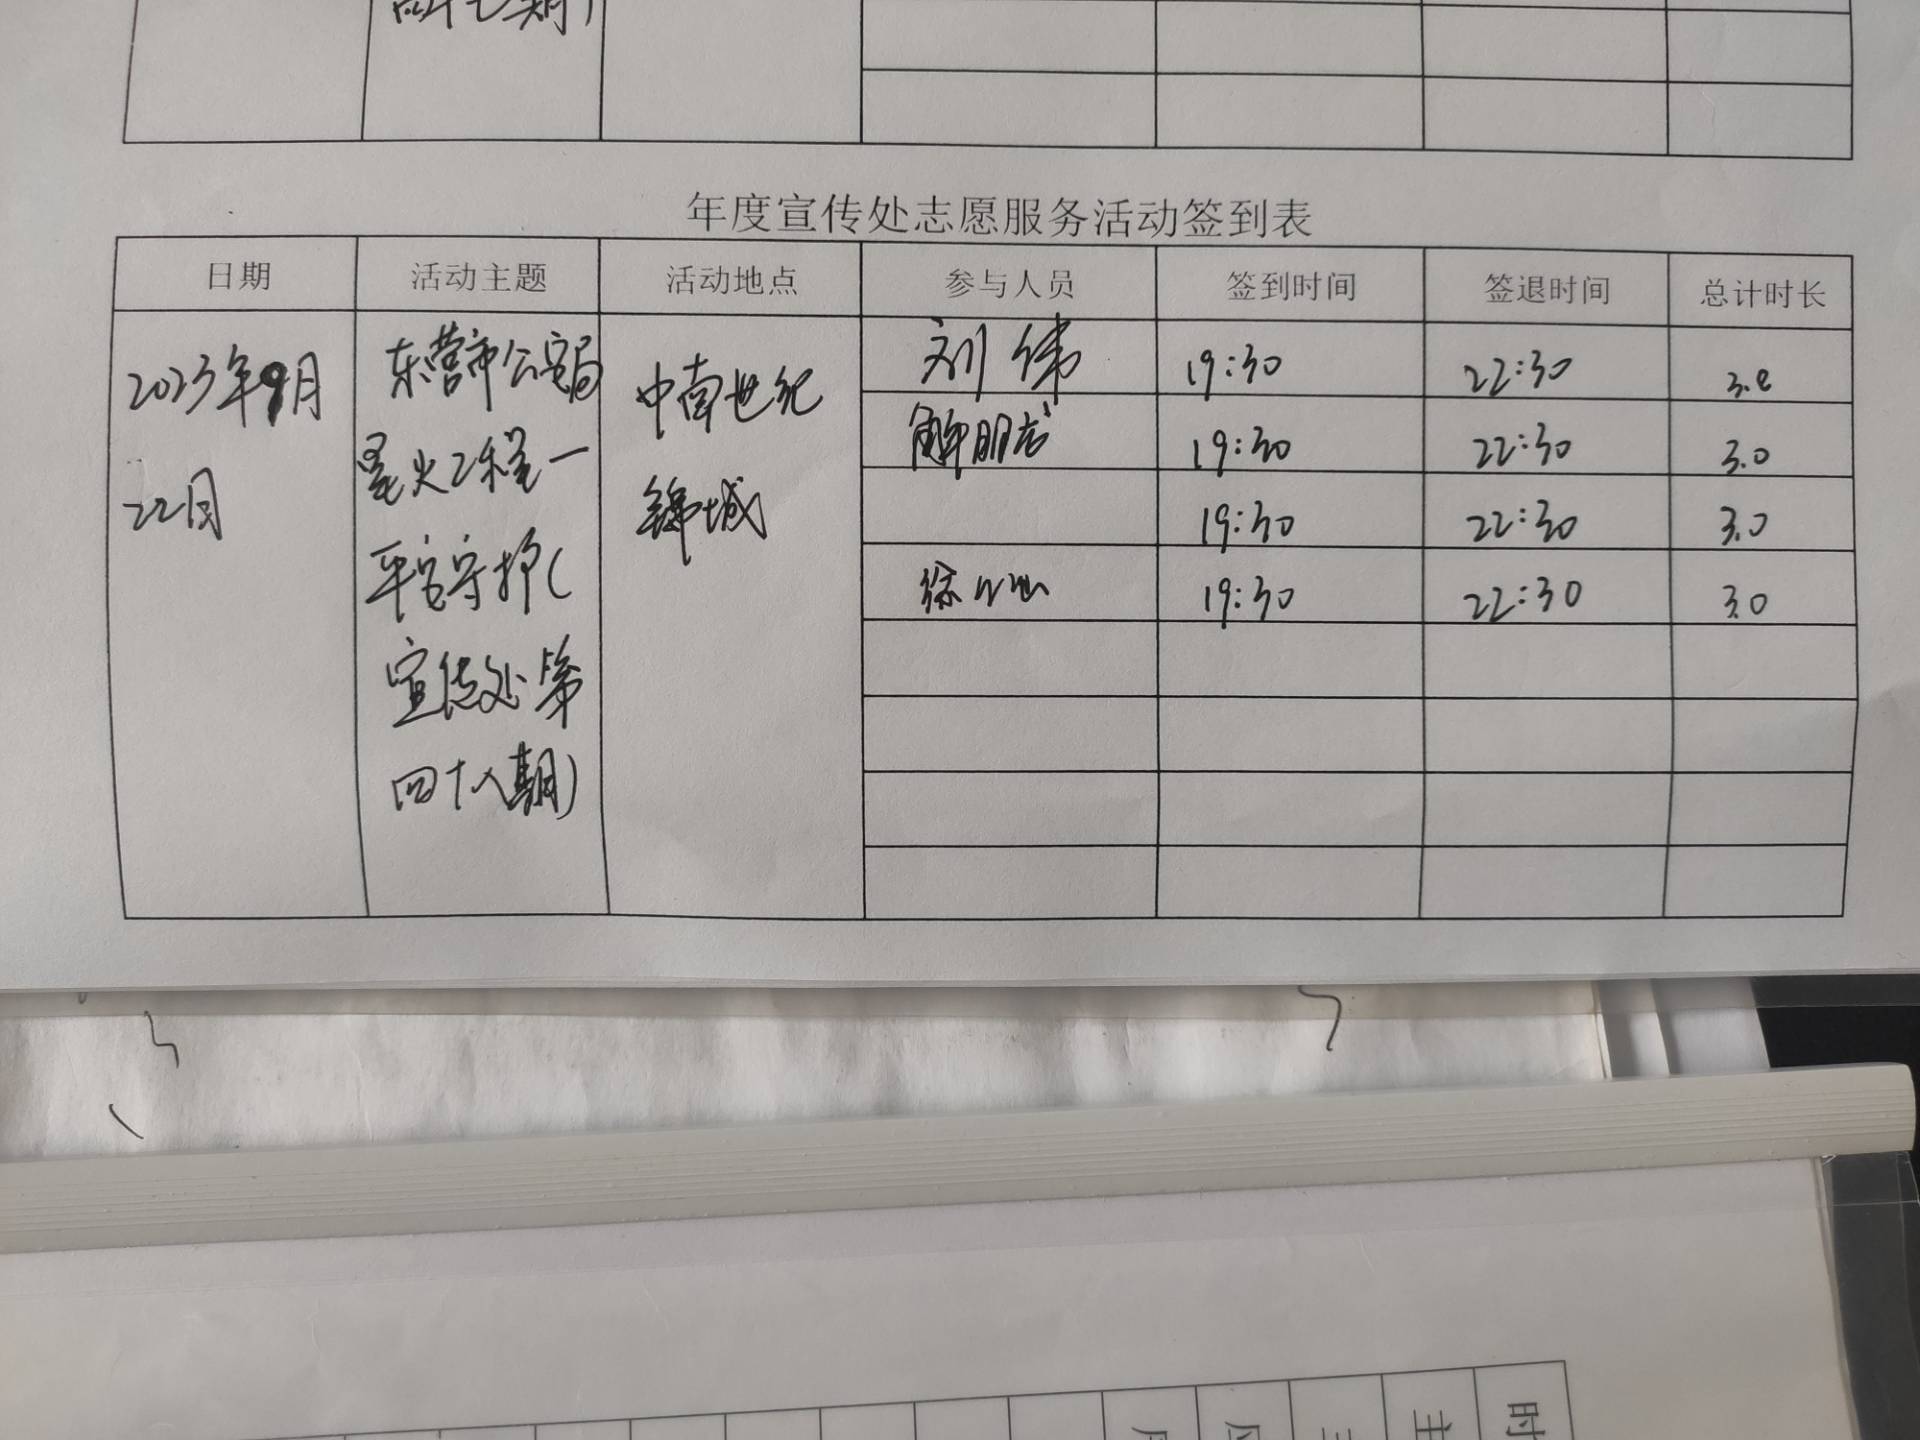 年度宣传处志愿服务活动签到表
日期 活动主题 活动地点 参与人员 签到时间 签退时间 总计时长
2023年9月
22日
东营市公安局
星火工程一
平安守护(
宣传处第
四十八期)
中南世纪
锦城
刘伟 19:30 22:30 3.0
解朋 19:30 22:30 3.0
19:30 22:30 3.0
徐 19:30 22:30 3.0
时
主